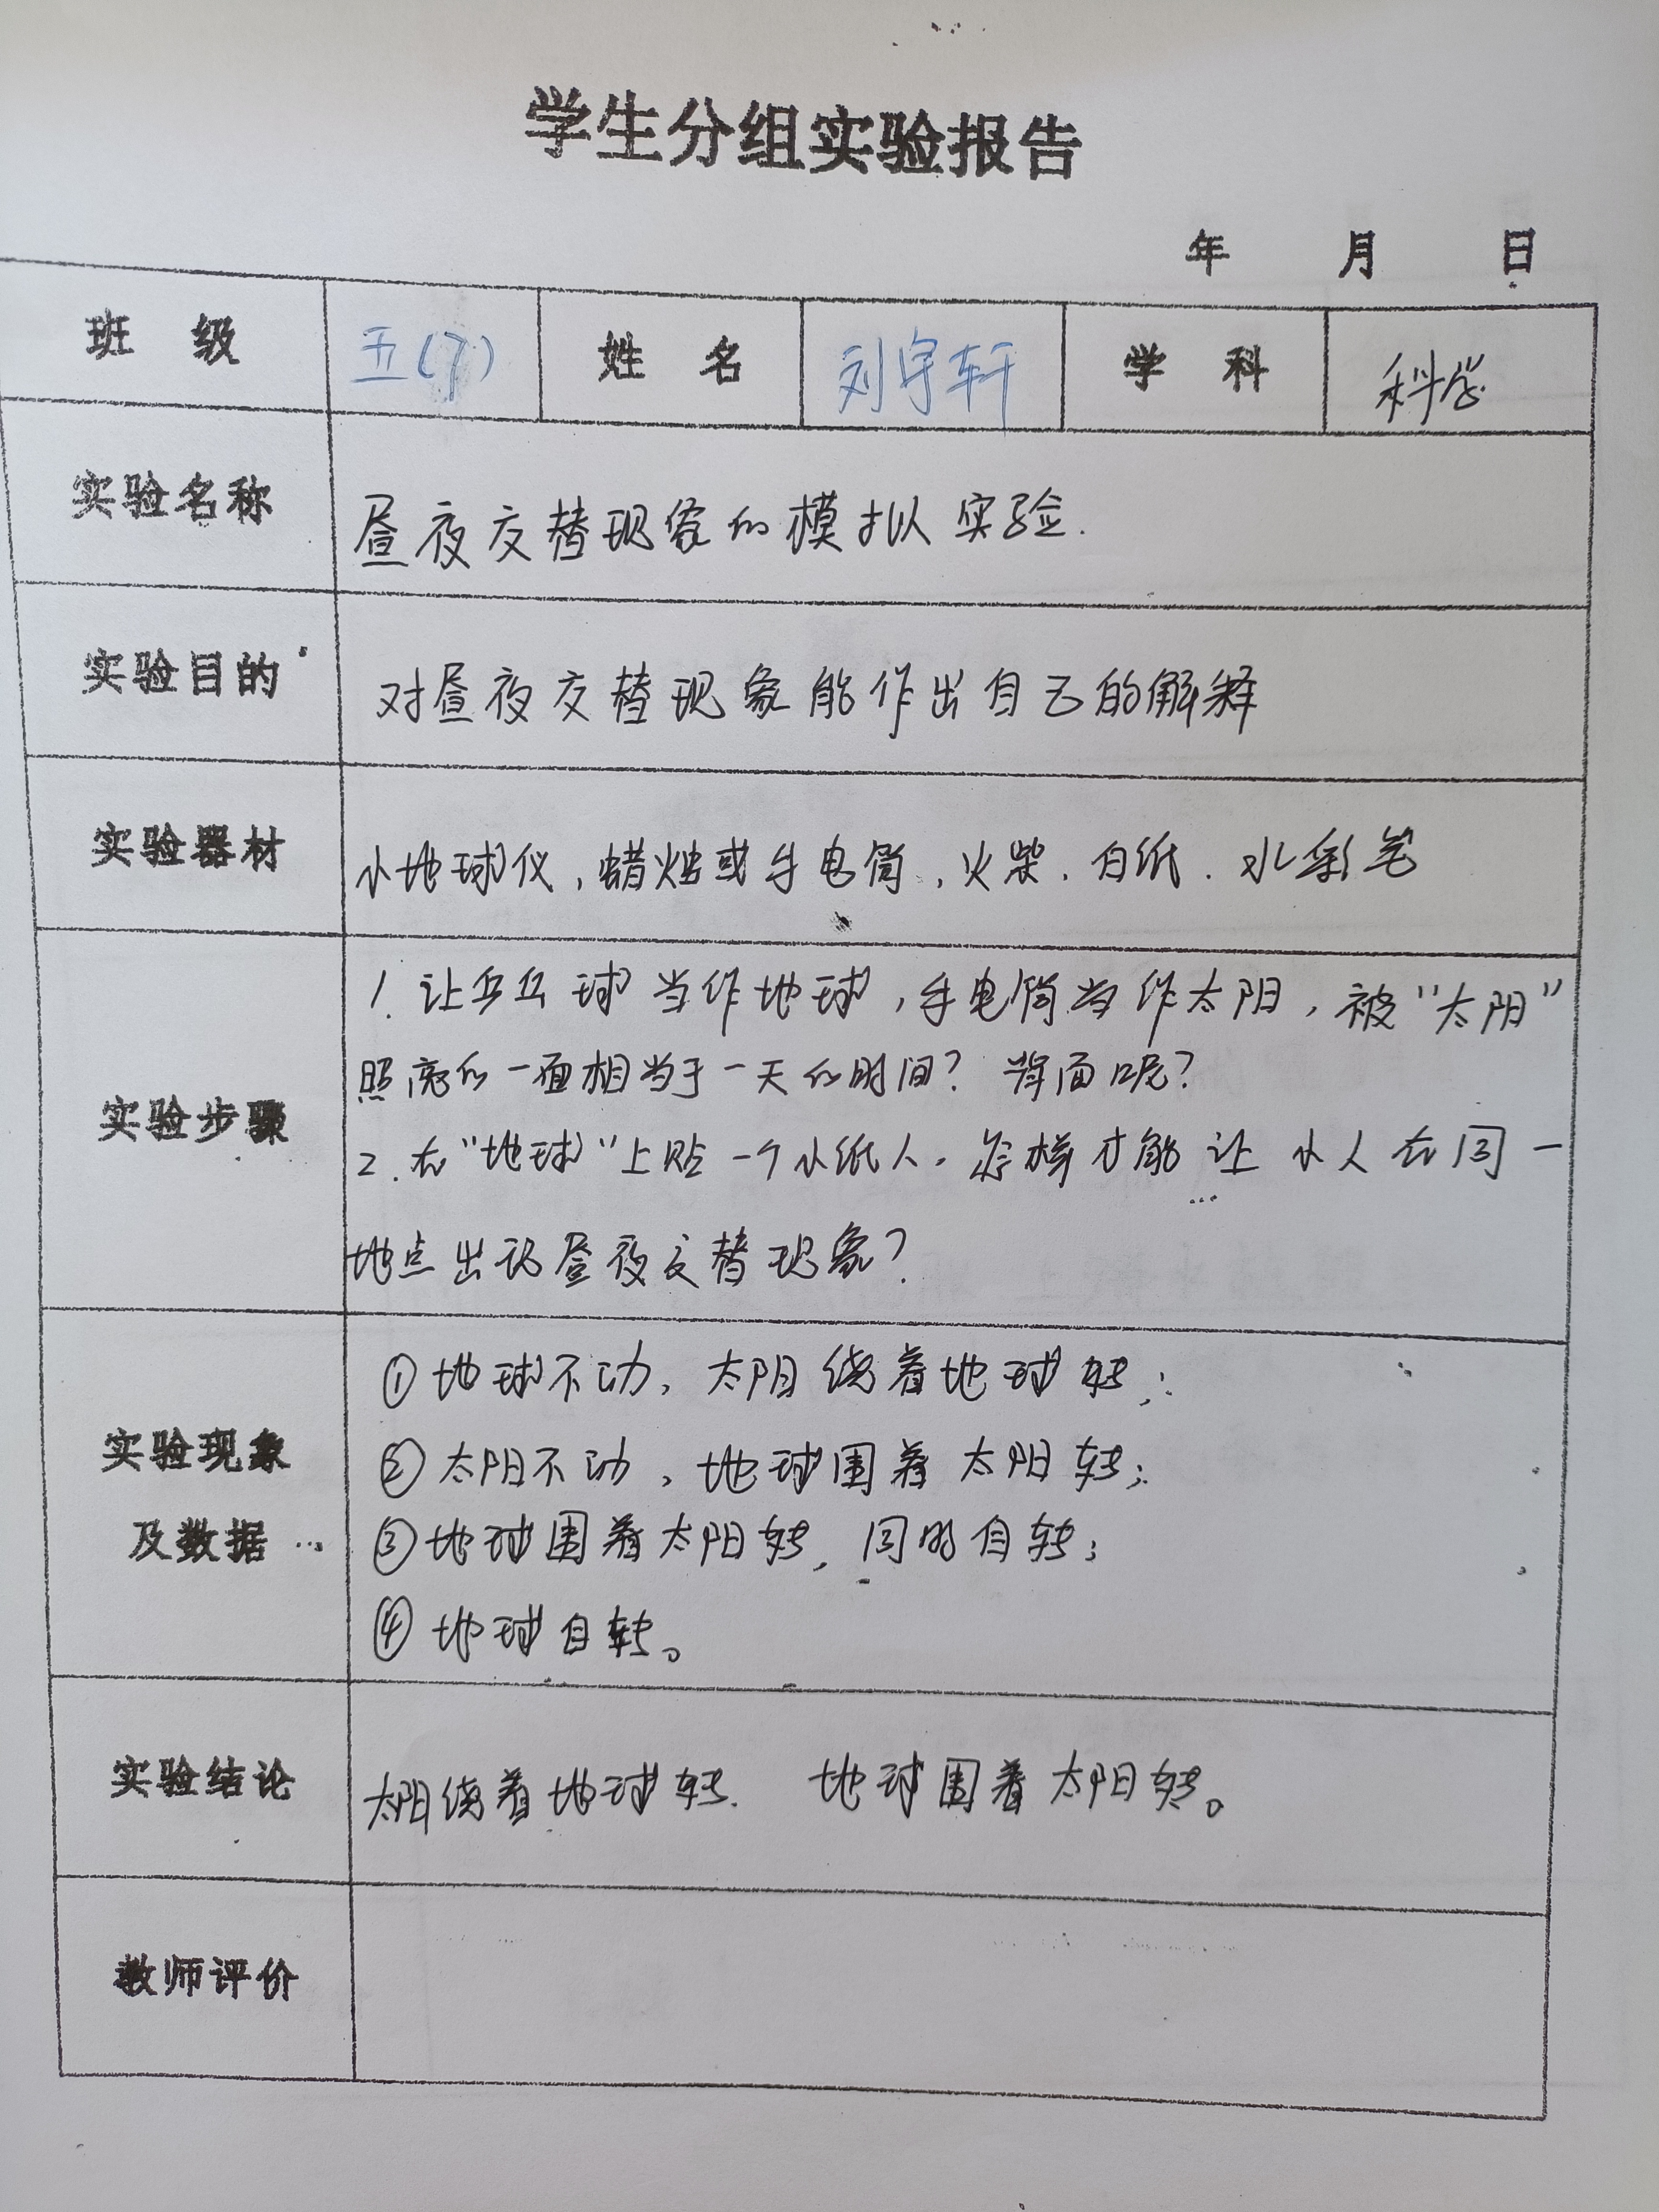 学生分组实验报告
年 月 日
班 级 五(7) 姓 名 刘宇轩 学 科 科学
实验名称 昼夜交替现象的模拟实验.
实验目的 对昼夜交替现象能作出自己的解释
实验器材 小地球仪,蜡烛或手电筒,火柴、白纸.水彩笔
实验步骤
1.让乒乓球当作地球,手电筒当作太阳,被"太阳"
照亮的一面相当于一天的时间?背面呢?
2.在"地球"上贴一个小纸人,怎样才能让小人在同一
地点出现昼夜交替现象?
实验现象
及数据
①地球不动,太阳绕着地球转;
②太阳不动,地球围着太阳转;
③地球围着太阳转,同时自转;
④地球自转。
实验结论 太阳绕着地球转. 地球围着太阳转。
教师评价